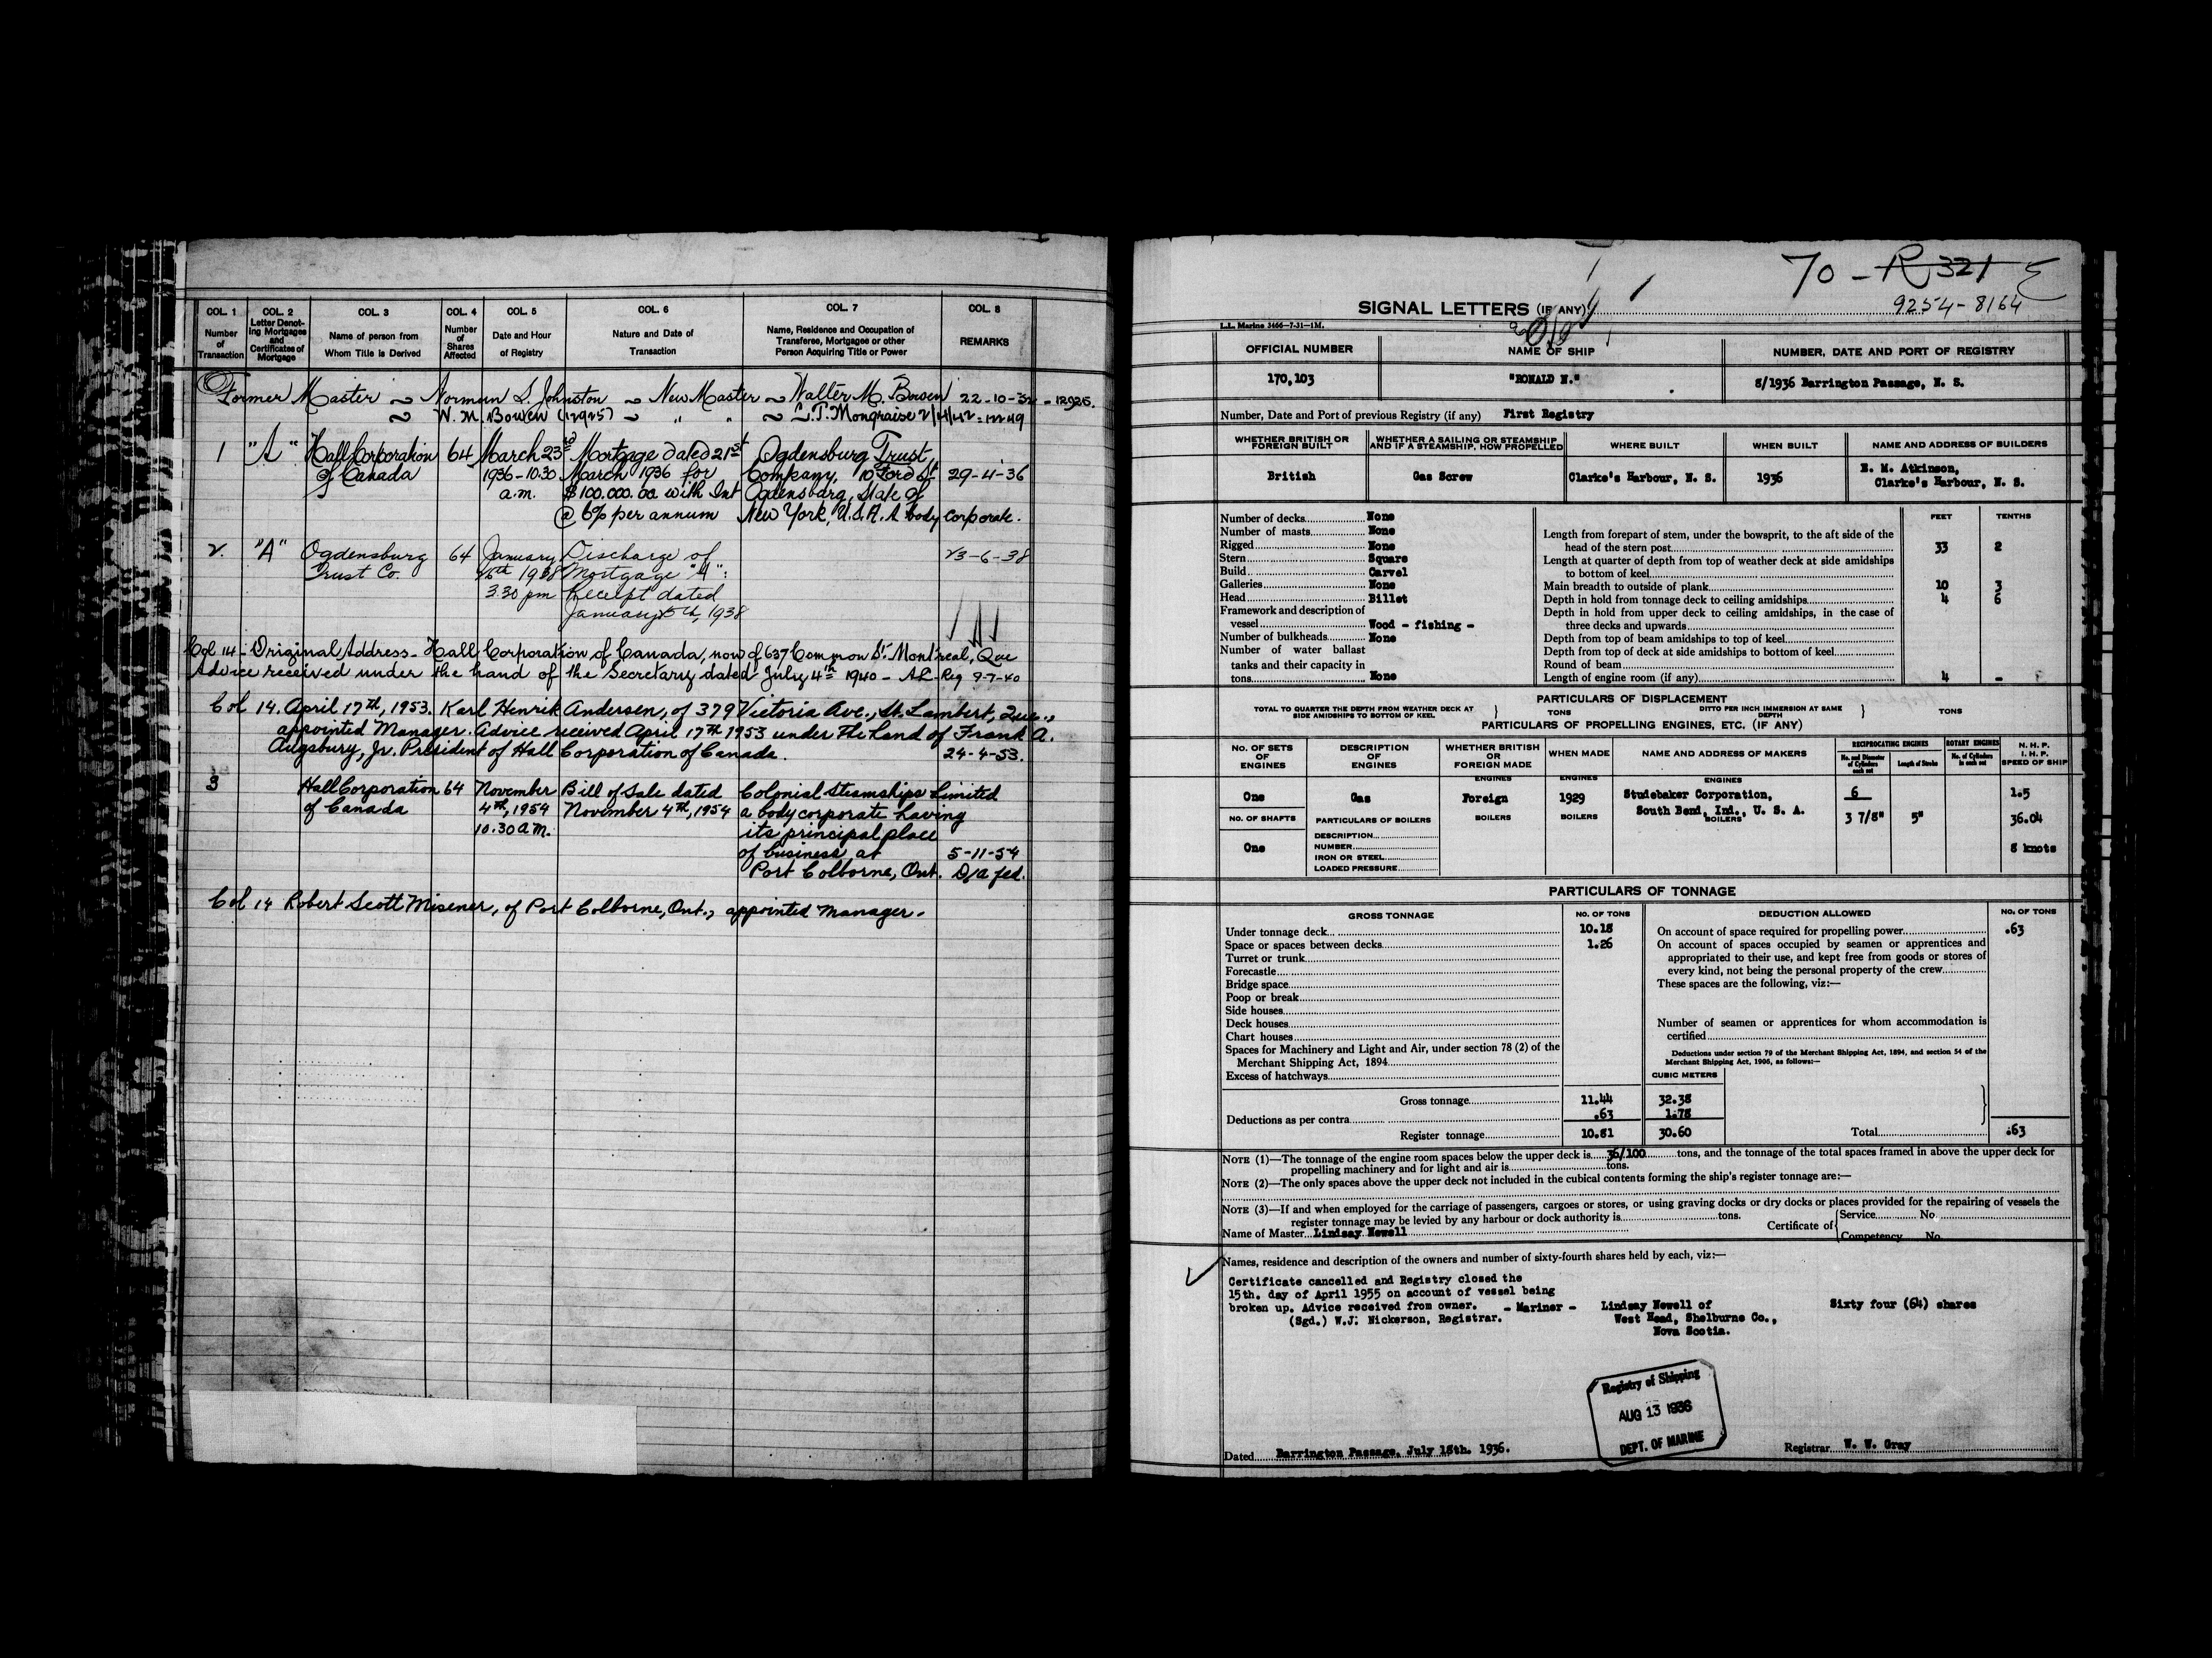 COL. 1 COL. 2 COL. 3 COL. 4 COL. 5 COL. 6 COL. 7 COL. 8
Number of Transaction
Letter Denoting Mortgages and Certificates of Mortgage
Name of person from Whom Title is Derived
Number of Shares Affected
Date and Hour of Registry
Nature and Date of Transaction
Name, Residence and Occupation of Transferee, Mortgagee or other Person Acquiring Title or Power
REMARKS
Former Master ~ Norman S. Johnston ~ New Master ~ Walter M. Bowen 22-10-32 - 12925.
~ W. M. Bowen (12925) ~ " " ~ L. T. Mongraise 2/4/42 -
1 "A" Hall Corporation 64 March 23rd Mortgage dated 21st Ogdensburg Trust
of Canada 1936 - 10.30 March 1936 for Company, 10 Ford St 29-4-36
a.m. $100.000.00 with Int Ogdensburg, State of
@ 6% per annum New York, U.S.A. A body corporate.
2. "A" Ogdensburg 64 January Discharge of 23-6-38
Trust Co. 1938 Mortgage "A":
3.30 pm Receipt dated
January 1938
Col 14 - Original Address - Hall Corporation of Canada, now of 637 Common St. Montreal, Que
Advice received under the hand of the Secretary dated July 4th 1940 - Reg 9-7-40
Col 14. April 17th, 1953. Karl Henrik Andersen, of 379 Victoria Ave., St. Lambert, Que.,
appointed Manager. Advice received April 17th 1953 under the hand of Frank A.
Augsbury, Jr. President of Hall Corporation of Canada. 24-4-53.
3 Hall Corporation 64 November Bill of Sale dated Colonial Steamships Limited
of Canada 4th, 1954 November 4th, 1954 a body corporate having
10.30 A.M. its principal place
of business at 5-11-54
Port Colborne, Ont. D/a fed.
Col 14 Robert Scott Misener, of Port Colborne, Ont., appointed manager.
70 - R 321
9254-8164
SIGNAL LETTERS (IF ANY)
L.L. Marine 3466-7-31-1M.
OFFICIAL NUMBER NAME OF SHIP NUMBER, DATE AND PORT OF REGISTRY
170,103 "RONALD N." 8/1936 Barrington Passage, N. S.
Number, Date and Port of previous Registry (if any) First Registry
WHETHER BRITISH OR FOREIGN BUILT
WHETHER A SAILING OR STEAMSHIP AND IF A STEAMSHIP, HOW PROPELLED
WHERE BUILT
WHEN BUILT
NAME AND ADDRESS OF BUILDERS
British Gas Screw Clarke's Harbour, N. S. 1936 E. M. Atkinson,
Clarke's Harbour, N. S.
FEET TENTHS
Number of decks None
Number of masts None
Rigged None
Stern Square
Build Carvel
Galleries None
Head Billet
Framework and description of
vessel Wood - fishing -
Number of bulkheads None
Number of water ballast
tanks and their capacity in
tons None
Length from forepart of stem, under the bowsprit, to the aft side of the
head of the stern post 33 2
Length at quarter of depth from top of weather deck at side amidships
to bottom of keel
Main breadth to outside of plank 10 3
Depth in hold from tonnage deck to ceiling amidships 4 6
Depth in hold from upper deck to ceiling amidships, in the case of
three decks and upwards
Depth from top of beam amidships to top of keel
Depth from top of deck at side amidships to bottom of keel
Round of beam
Length of engine room (if any) 4 -
PARTICULARS OF DISPLACEMENT
TOTAL TO QUARTER THE DEPTH FROM WEATHER DECK AT SIDE AMIDSHIPS TO BOTTOM OF KEEL } TONS
DITTO PER INCH IMMERSION AT SAME DEPTH } TONS
PARTICULARS OF PROPELLING ENGINES, ETC. (IF ANY)
NO. OF SETS OF ENGINES
DESCRIPTION OF ENGINES
WHETHER BRITISH OR FOREIGN MADE
WHEN MADE
NAME AND ADDRESS OF MAKERS
RECIPROCATING ENGINES
No. and Diameter of Cylinders each set
Length of Stroke
ROTARY ENGINES
No. of Cylinders in each set
N. H. P.
I. H. P.
SPEED OF SHIP
ENGINES ENGINES ENGINES
One Gas Foreign 1929 Studebaker Corporation, 6 1.5
South Bend, Ind., U. S. A. 3 7/8" 5" 36.04
NO. OF SHAFTS PARTICULARS OF BOILERS BOILERS BOILERS BOILERS
One 8 knots
DESCRIPTION
NUMBER
IRON OR STEEL
LOADED PRESSURE
PARTICULARS OF TONNAGE
GROSS TONNAGE NO. OF TONS DEDUCTION ALLOWED NO. OF TONS
Under tonnage deck 10.18
Space or spaces between decks 1.26
Turret or trunk
Forecastle
Bridge space
Poop or break
Side houses
Deck houses
Chart houses
Spaces for Machinery and Light and Air, under section 78 (2) of the
Merchant Shipping Act, 1894
Excess of hatchways
On account of space required for propelling power .63
On account of spaces occupied by seamen or apprentices and
appropriated to their use, and kept free from goods or stores of
every kind, not being the personal property of the crew
These spaces are the following, viz:—
Number of seamen or apprentices for whom accommodation is
certified
Deductions under section 79 of the Merchant Shipping Act, 1894, and section 54 of the
Merchant Shipping Act, 1906, as follows:—
CUBIC METERS
Gross tonnage 11.44 32.38
Deductions as per contra .63 1.78
Register tonnage 10.81 30.60 Total .63
NOTE (1)—The tonnage of the engine room spaces below the upper deck is 36/100 tons, and the tonnage of the total spaces framed in above the upper deck for
propelling machinery and for light and air is tons.
NOTE (2)—The only spaces above the upper deck not included in the cubical contents forming the ship's register tonnage are:—
NOTE (3)—If and when employed for the carriage of passengers, cargoes or stores, or using graving docks or dry docks or places provided for the repairing of vessels the
register tonnage may be levied by any harbour or dock authority is tons.
Certificate of { Service No.
Competency No.
Name of Master Lindsay Newell
Names, residence and description of the owners and number of sixty-fourth shares held by each, viz:—
Certificate cancelled and Registry closed the
15th. day of April 1955 on account of vessel being
broken up. Advice received from owner.
(Sgd.) W.J. Nickerson, Registrar.
- Mariner - Lindsay Newell of Sixty four (64) shares
West Head, Shelburne Co.,
Nova Scotia.
Registry of Shipping
AUG 13 1936
DEPT. OF MARINE
Dated Barrington Passage, July 18th. 1936. Registrar W. W. Gray